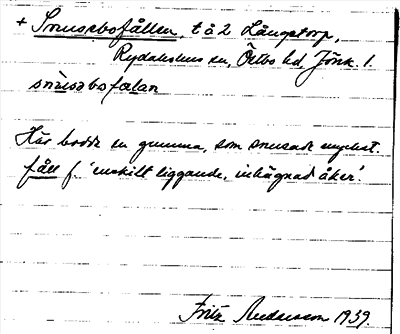 + Snusebofållen, t å 2 Långstorp,
Rydaholms sn, Östbo hd, Jönk. l.
snùsəbofɷlan
Här bodde en gumma, som snusade mycket.
fåll f. 'enskilt liggande, inhägnad åker'.
Fritz Andersson 1939